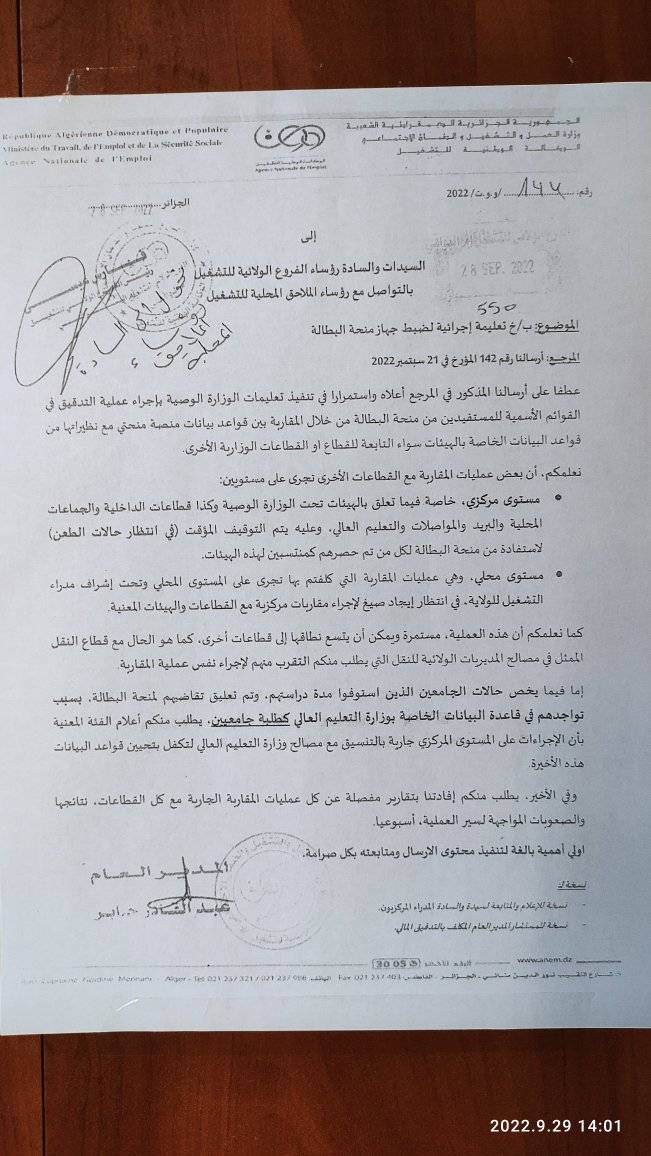 République Algérienne Démocratique et Populaire
Ministère du Travail, de l'Emploi et de La Sécurité Sociale
Agence Nationale de l'Emploi
الجمهورية الجزائرية الديمقراطية الشعبية
وزارة العمل و التشغيل و الضمان الاجتماعي
الوكالة الوطنية للتشغيل
الوكالة الوطنية للتشغيل
Agence Nationale de l'Emploi
رقم: 144 /و.و.ت/ 2022
الجزائر 28 SEP. 2022
28 SEP. 2022
إلى
السيدات والسادة رؤساء الفروع الولائية للتشغيل
بالتواصل مع رؤساء الملاحق المحلية للتشغيل
550
الموضوع: ب/خ تعليمة إجرائية لضبط جهاز منحة البطالة
المرجع: أرسالنا رقم 142 المؤرخ في 21 سبتمبر 2022
عطفا على أرسالنا المذكور في المرجع أعلاه واستمرارا في تنفيذ تعليمات الوزارة الوصية بإجراء عملية التدقيق في
القوائم الأسمية للمستفيدين من منحة البطالة من خلال المقاربة بين قواعد بيانات منصة منحتي مع نظيراتها من
قواعد البيانات الخاصة بالهيئات سواء التابعة للقطاع او القطاعات الوزارية الأخرى.
نعلمكم، أن بعض عمليات المقاربة مع القطاعات الأخرى تجرى على مستويين:
• مستوى مركزي، خاصة فيما تعلق بالهيئات تحت الوزارة الوصية وكذا قطاعات الداخلية والجماعات
المحلية والبريد والمواصلات والتعليم العالي، وعليه يتم التوقيف المؤقت (في انتظار حالات الطعن)
لاستفادة من منحة البطالة لكل من تم حصرهم كمنتسبين لهذه الهيئات.
• مستوى محلي، وهي عمليات المقاربة التي كلفتم بها تجرى على المستوى المحلي وتحت إشراف مدراء
التشغيل للولاية، في انتظار إيجاد صيغ لإجراء مقاربات مركزية مع القطاعات والهيئات المعنية.
كما نعلمكم أن هذه العملية، مستمرة ويمكن أن يتسع نطاقها إلى قطاعات أخرى، كما هو الحال مع قطاع النقل
الممثل في مصالح المديريات الولائية للنقل التي يطلب منكم التقرب منهم لإجراء نفس عملية المقاربة.
إما فيما يخص حالات الجامعين الذين استوفوا مدة دراستهم، وتم تعليق تقاضيهم لمنحة البطالة، بسبب
تواجدهم في قاعدة البيانات الخاصة بوزارة التعليم العالي كطلبة جامعيين، يطلب منكم أعلام الفئة المعنية
بأن الإجراءات على المستوى المركزي جارية بالتنسيق مع مصالح وزارة التعليم العالي لتكفل بتحيين قواعد البيانات
هذه الأخيرة.
وفي الأخير، يطلب منكم إفادتنا بتقارير مفصلة عن كل عمليات المقاربة الجارية مع كل القطاعات، نتائجها
والصعوبات المواجهة لسير العملية، أسبوعيا.
اولي أهمية بالغة لتنفيذ محتوى الارسال ومتابعته بكل صرامة.
المدير العام
عبد القادر جابر
نسخة لـ:
- نسخة للإعلام والمتابعة لسيدة والسادة المدراء المركزيون.
- نسخة للمستشار المدير العام المكلف بالتدقيق المالي.
www.anem.dz
الرقم الأخضر 30 05
شارع النقيب نور الدين مناني - الجزائر - الفاكس Fax 021 237 403 الهاتف Alger - Tél 021 237 321 / 021 237 986
2022.9.29 14:01